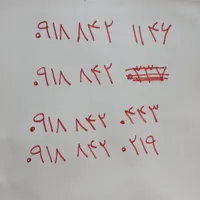 ۰۹۱۸ ۸۴۲ ۱۱۴۶
۰۹۱۸ ۸۴۲
۰۹۱۸ ۸۴۲ ۰۴۴۳
۰۹۱۸ ۸۴۲ ۰۲۱۹